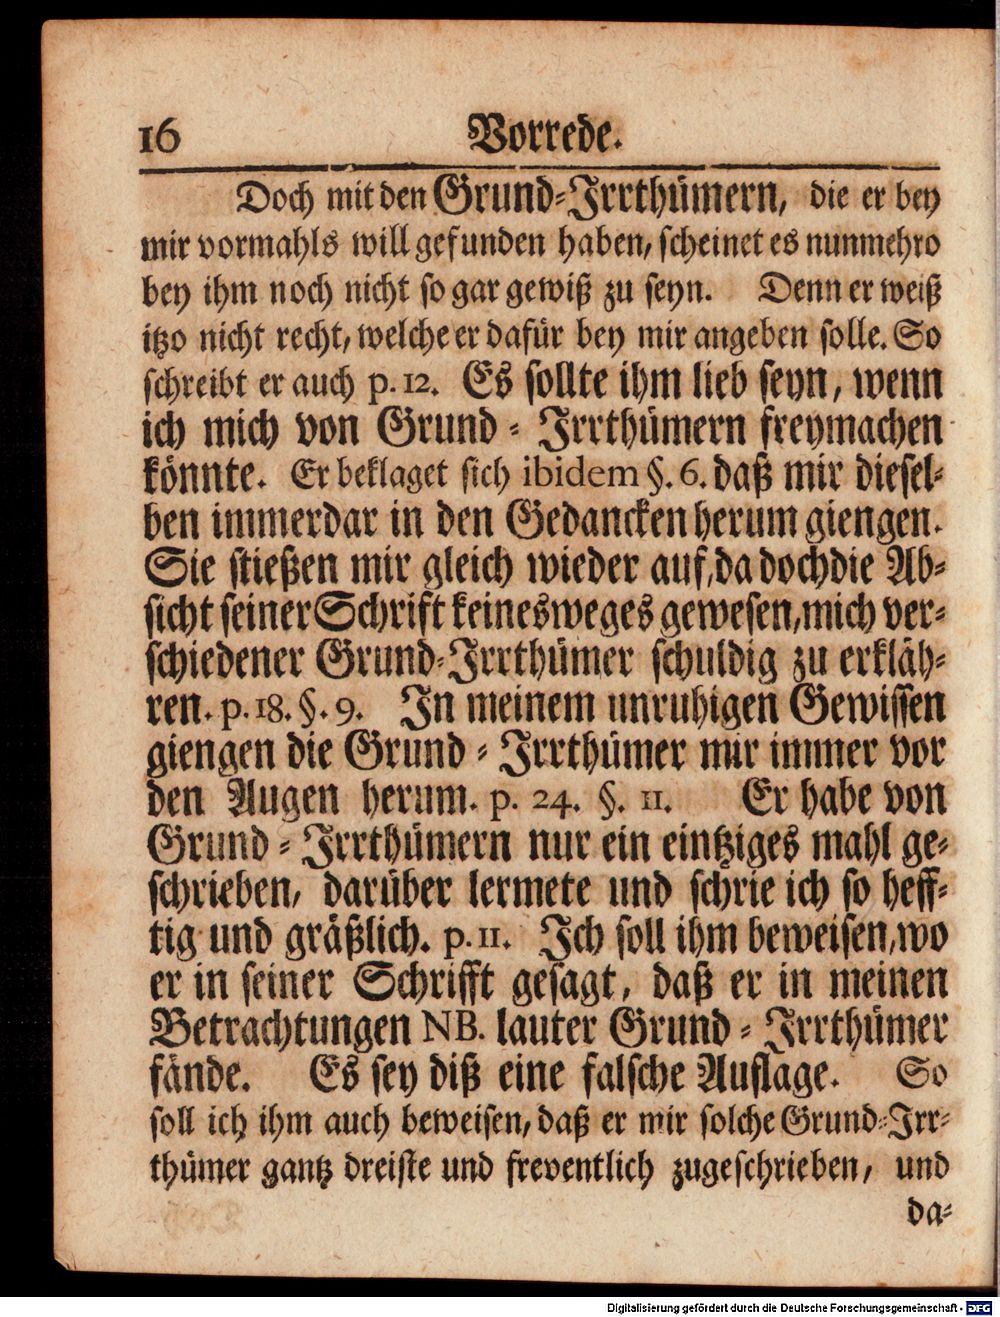 16 Vorrede.
Doch mit den Grund-Irrthümern, die er bey
mir vormahls will gefunden haben, scheinet es nunmehro
bey ihm noch nicht so gar gewiß zu seyn. Denn er weiß
itzo nicht recht, welche er dafür bey mir angeben solle. So
schreibt er auch p. 12. Es sollte ihm lieb seyn, wenn
ich mich von Grund-Irrthümern freymachen
könnte. Er beklaget sich ibidem §. 6. daß mir diesel-
ben immerdar in den Gedancken herum giengen.
Sie stießen mir gleich wieder auf, da doch die Ab-
sicht seiner Schrift keinesweges gewesen, mich ver-
schiedener Grund-Irrthümer schuldig zu erkläh-
ren. p. 18. §. 9. In meinem unruhigen Gewissen
giengen die Grund-Irrthümer mir immer vor
den Augen herum. p. 24. §. 11. Er habe von
Grund-Irrthümern nur ein eintziges mahl ge-
schrieben, darüber lermete und schrie ich so heff-
tig und gräßlich. p. 11. Ich soll ihm beweisen, wo
er in seiner Schrifft gesagt, daß er in meinen
Betrachtungen NB. lauter Grund-Irrthümer
fände. Es sey diß eine falsche Auflage. So
soll ich ihm auch beweisen, daß er mir solche Grund-Irr-
thümer gantz dreiste und freventlich zugeschrieben, und
da-
Digitalisierung gefördert durch die Deutsche Forschungsgemeinschaft - DFG